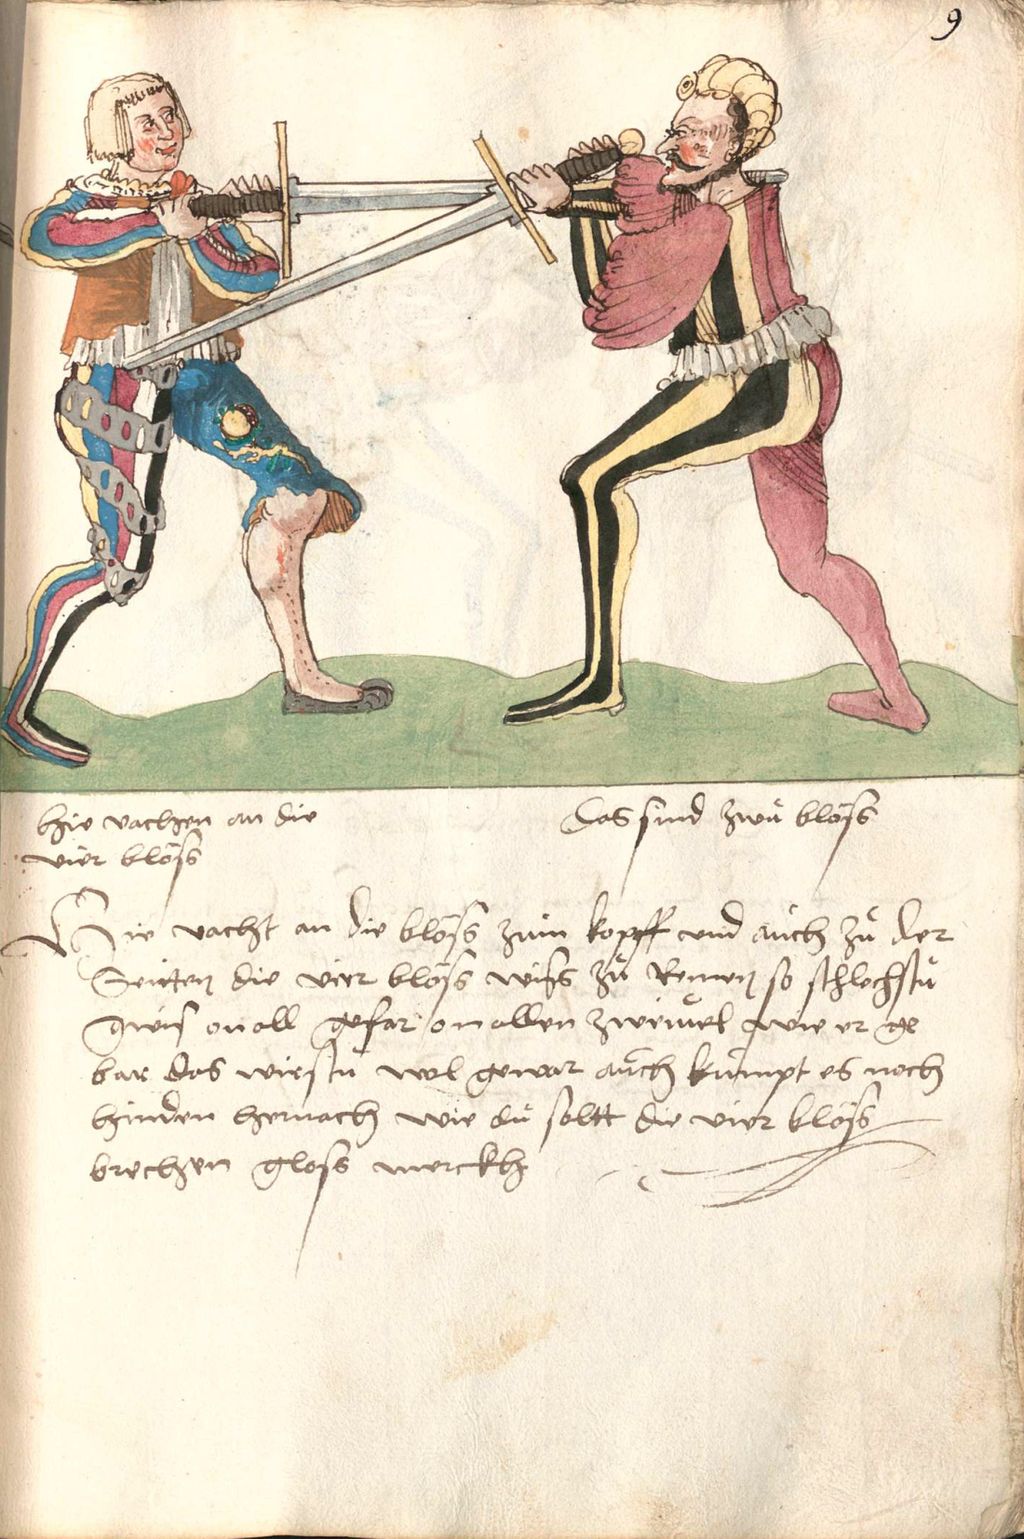 9
hie vachen an die
vier blöss
Das sind zwů blöss
Hie vacht an die blöss zům kopff vnd aůch zů der
Seitten die vier blöss wiss zů Remen so schlechstů
gwis on all gefar on allen zweiuel wie er ge
bar das wirstů wol gewar aůch kůmpt es noch
hinden hernach wie dů soltt die vier blöss
brechen gloss merckh